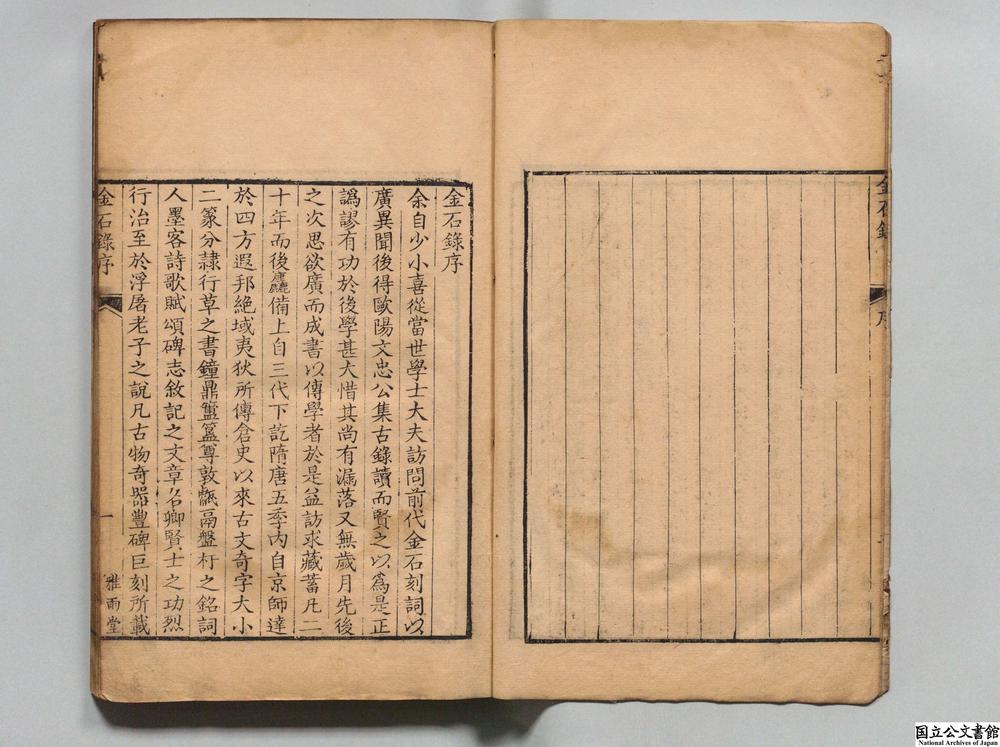 金石錄
序
金石錄序
余自少小喜從當世學士大夫訪問前代金石刻詞以
廣異聞後得歐陽文忠公集古錄讀而賢之以爲是正
譌謬有功於後學甚大惜其尚有漏落又無歲月先後
之次思欲廣而成書以傳學者於是益訪求藏蓄凡二
十年而後麤備上自三代下訖隋唐五季內自京師達
於四方遐邦絶域夷狄所傳倉史以來古文奇字大小
二篆分隸行草之書鐘鼎簠簋尊敦甗鬲盤杅之銘詞
人墨客詩歌賦頌碑志敘記之文章名卿賢士之功烈
行治至於浮屠老子之說凡古物奇器豐碑巨刻所載
金石錄序
一
雅雨堂
国立公文書館
National Archives of Japan